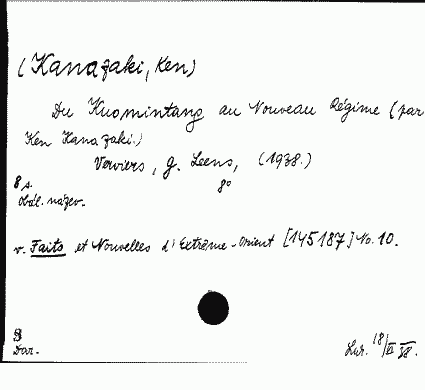 (Kanazaki, Ken)
Du Kuomintang au Nouveau Régime (par
Ken Kanazaki.)
Verviers, G. Leens, (1938.)
8 s. 8°
Obál. název.
v. Faits et Nouvelles d'Extrême-Orient [145187] No. 10.
Dar.
18/XI 38.